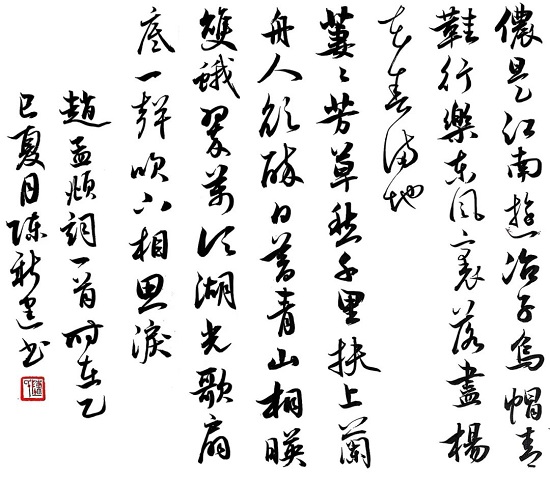 儂是江南遊冶子烏帽青
鞋行樂東風裏落盡楊
花春滿地
萋〻芳草愁千里扶上蘭
舟人欲醉日暮青山相映
雙蛾翠萬頃湖光歌扇
底一聲吹下相思淚
趙孟頫詞一首時在乙
巳夏月陳新書